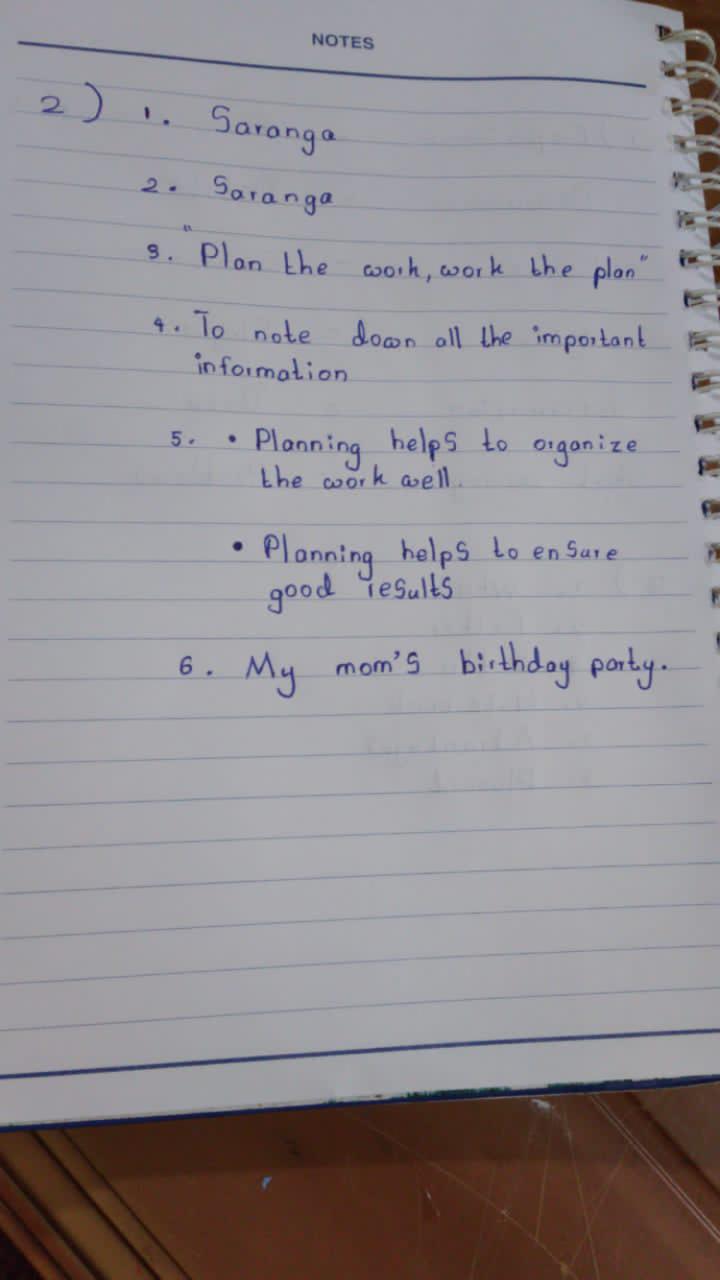 NOTES
2) 1. Saranga
2. Saranga
3. "Plan the work, work the plan"
4. To note down all the important
information
5. • Planning helps to organize
the work well.
• Planning helps to ensure
good results
6. My mom's birthday party.